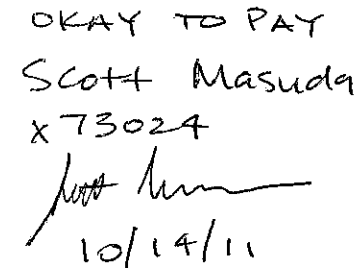 OKAY TO PAY
Scott Masuda
x73024
10/14/11